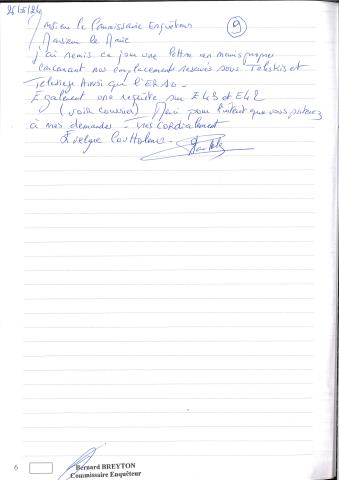 25/5/24
9
Monsieur le Commissaire Enquêteur
Monsieur le Maire
J'ai remis ce jour une lettre en mains propres
concernant nos emplacements réservés sous Teleskis et
Telesiege Ainsi que l'ER10.
Egalement une requête sur E43 et E42
(voir courrier) Merci pour l'intérêt que vous porterez
à mes demandes - Très Cordialement
Evelyne
6
Bernard BREYTON
Commissaire Enquêteur